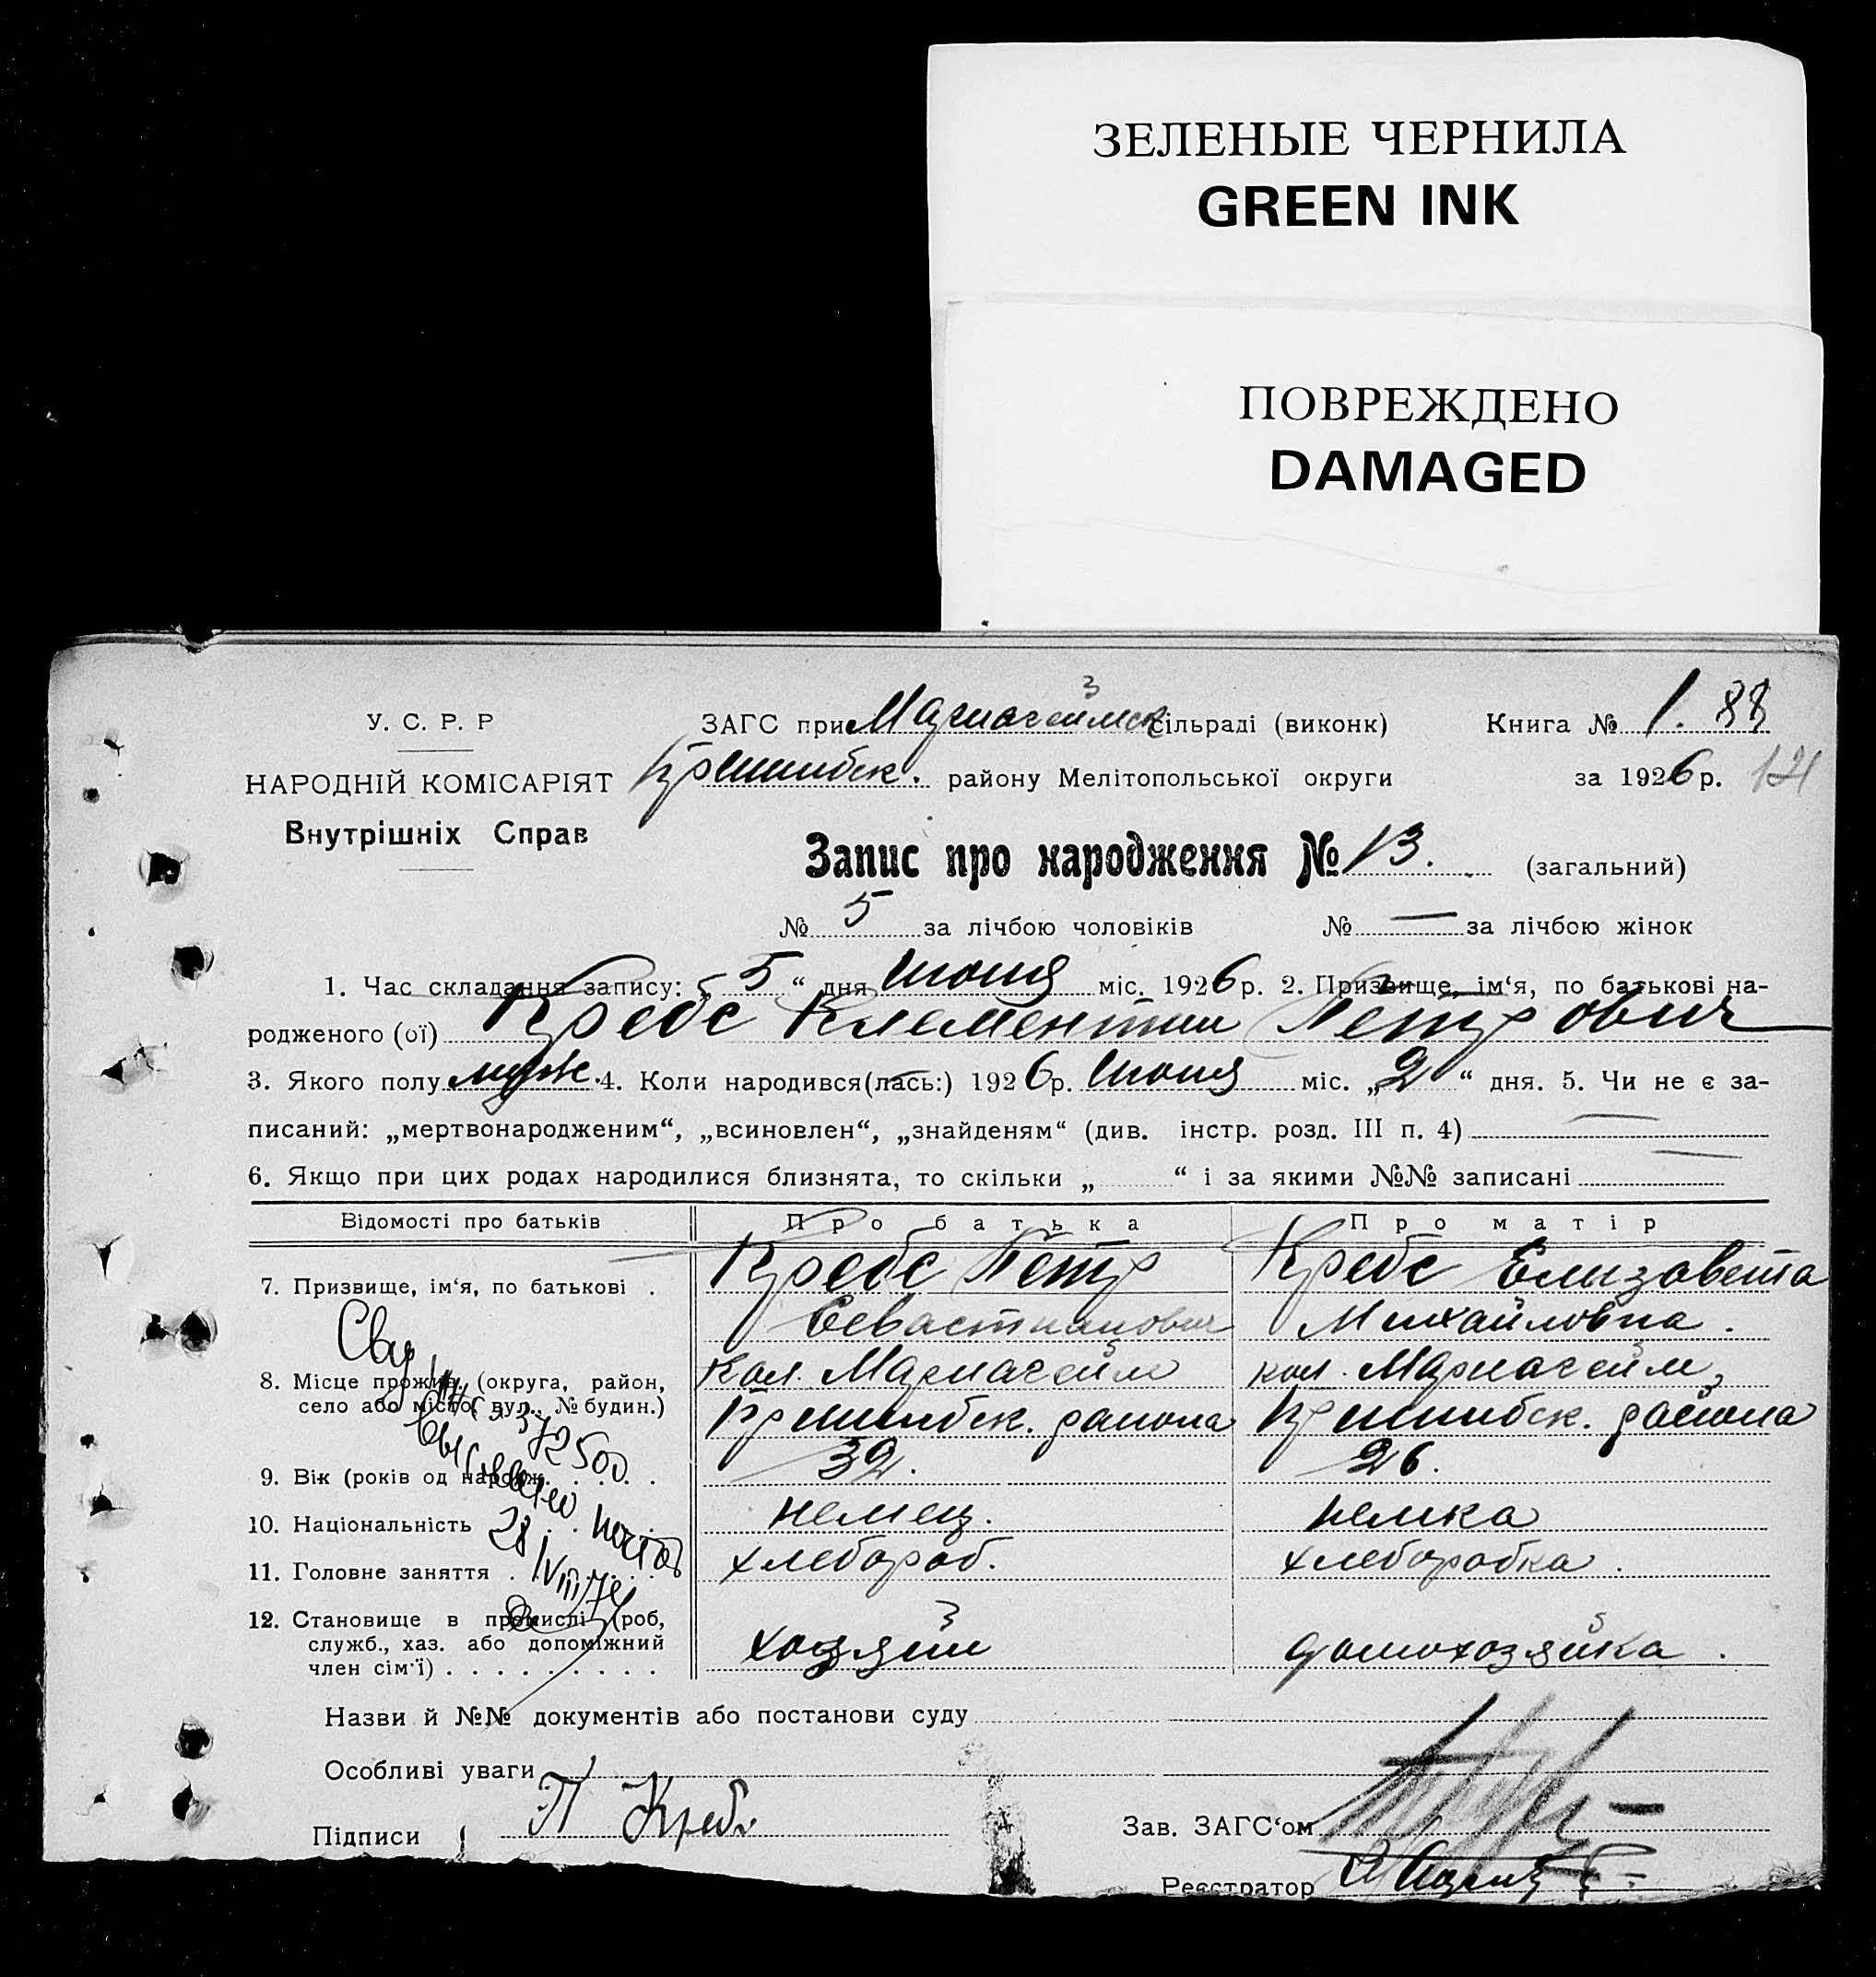 ЗЕЛЕНЫЕ ЧЕРНИЛА
GREEN INK
ПОВРЕЖДЕНО
DAMAGED
У. С. Р. Р
НАРОДНІЙ КОМІСАРІЯТ
Внутрішніх Справ
ЗАГС при Мариагеймск сільраді (виконк) Книга № 1. 88
Кришибск. району Мелітопольської округи за 1926 р. 121
Запис про народження № 13. (загальний)
№ 5 за лічбою чоловіків № — за лічбою жінок
1. Час складання запису: „ 5 “ дня Июня міс. 1926 р. 2. Призвище, ім‘я, по батькові на-
родженого (ої) Кребс Клементин Петрович
3. Якого полу муж. 4. Коли народився(лась:) 1926 р. Июня міс. „ 2 “ дня. 5. Чи не є за-
писаний: „мертвонародженим“, „всиновлен“, „знайденям“ (див. інстр. розд. III п. 4) —
6. Якщо при цих родах народилися близнята, то скільки „ “ і за якими №№ записані —
Відомості про батьків Про батька Про матір
7. Призвище, ім‘я, по батькові . Кребс Петр Кребс Елизавета
Севастианович Михайловна .
8. Місце прожив. (округа, район, Кол. Мариагейм кол. Мариагейм,
село або місто, вул., № будин.) Кришибск. района Кришибск. района
9. Вік (років од народж. . . . . 32. 26.
10. Національність немец. немка
11. Головне заняття . . . . . хлебороб. хлеборобка .
12. Становище в промислі (роб,
служб., хаз. або допоміжний хозяин домохозяйка .
член сім‘ї) . . . . . . . . .
372500
28/VIII
Назви й №№ документів або постанови суду
Особливі уваги
Підписи П Кребс Зав. ЗАГС‘ом
Реєстратор